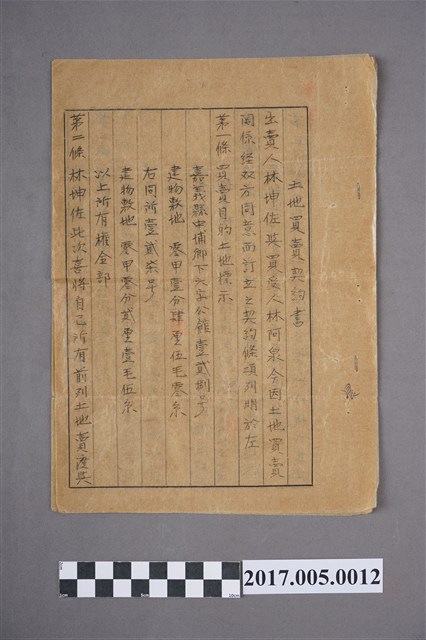 土地買賣契約書
出賣人林坤佐與買受人林阿泉今因土地買賣
關係經双方同意而訂立之契約條項列明於左
第一條 買賣目的土地標示
嘉義縣中埔鄉下六字公館壹貳捌號
建物敷地 零甲壹分肆厘伍毛零糸
右同所壹貳柒號
建物敷地 零甲零分貳厘壹毛伍糸
以上所有權全部
第二條 林坤佐此次喜將自己所有前列土地賣渡與
2017.005.0012